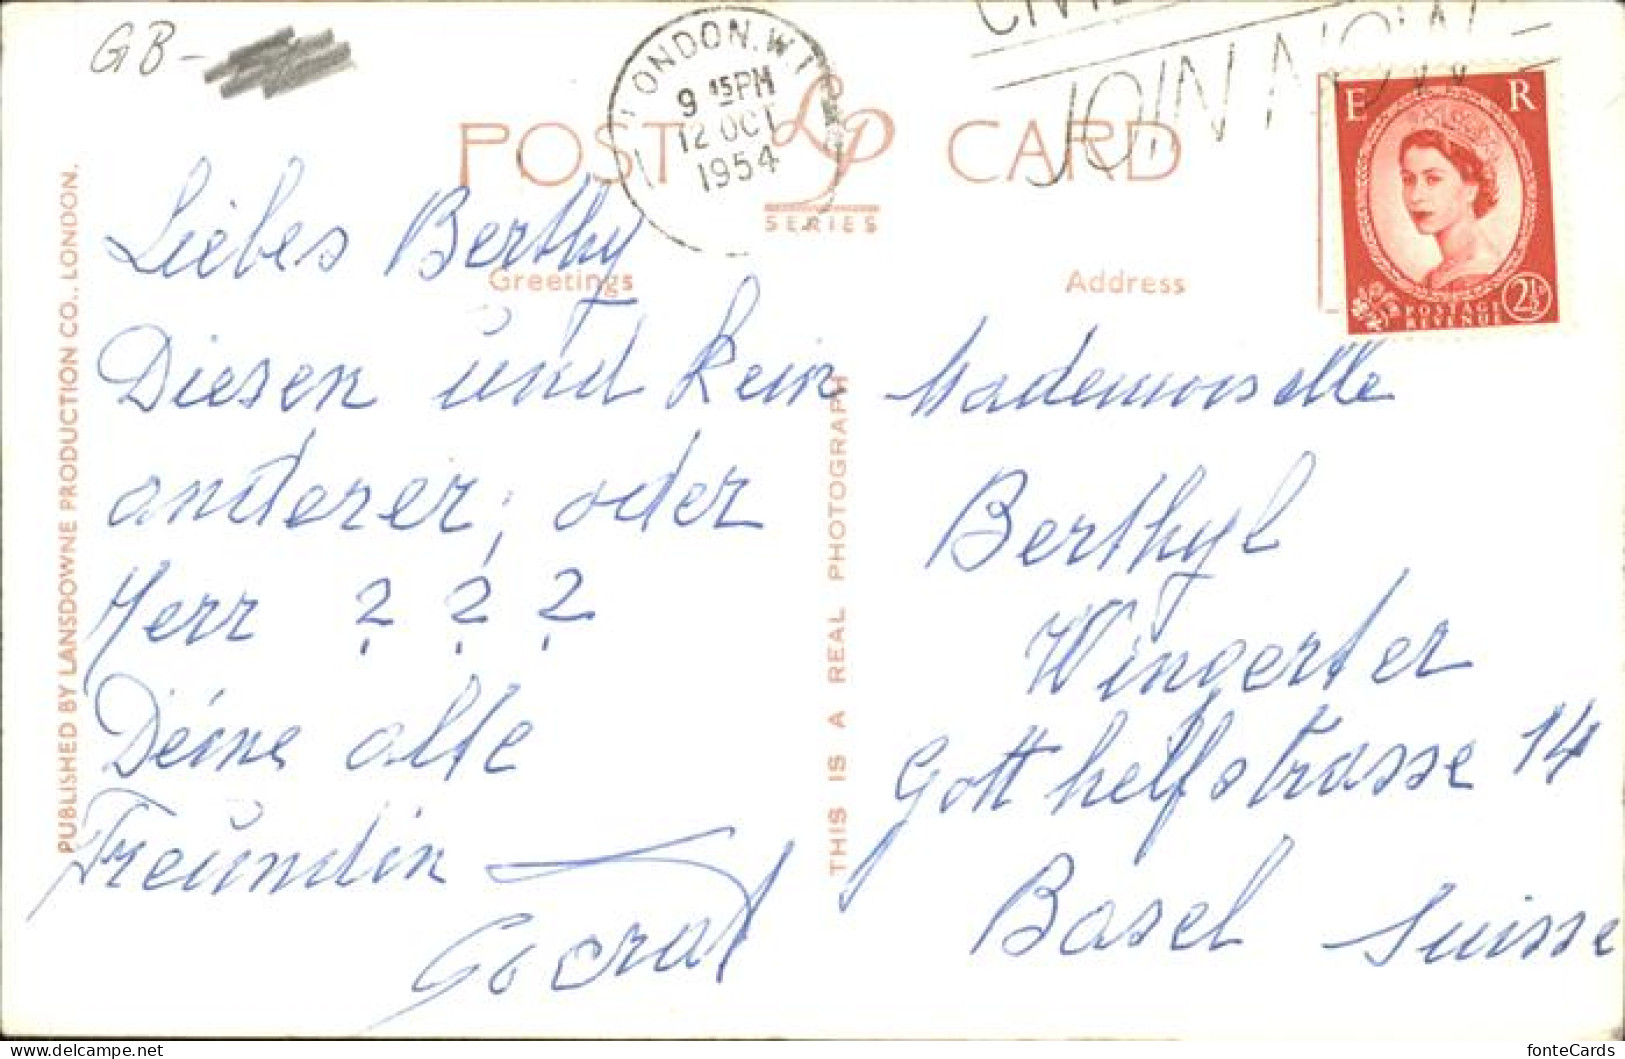 GB-
LONDON. W.1
9 15 PM
12 OCT
1954
JOIN NOW
POST CARD
LP
SERIES
Greetings
Address
E R
POSTAGE
REVENUE
2½D
PUBLISHED BY LANSDOWNE PRODUCTION CO., LONDON.
THIS IS A REAL PHOTOGRAPH
Liebes Berthy
Diesen und kein
anderer, oder
Herr ? ? ?
Deine alte
Freundin
Mademoiselle
Berthyl
Wingerter
Gotthelfstrasse 14
Basel Suisse
fonteCards